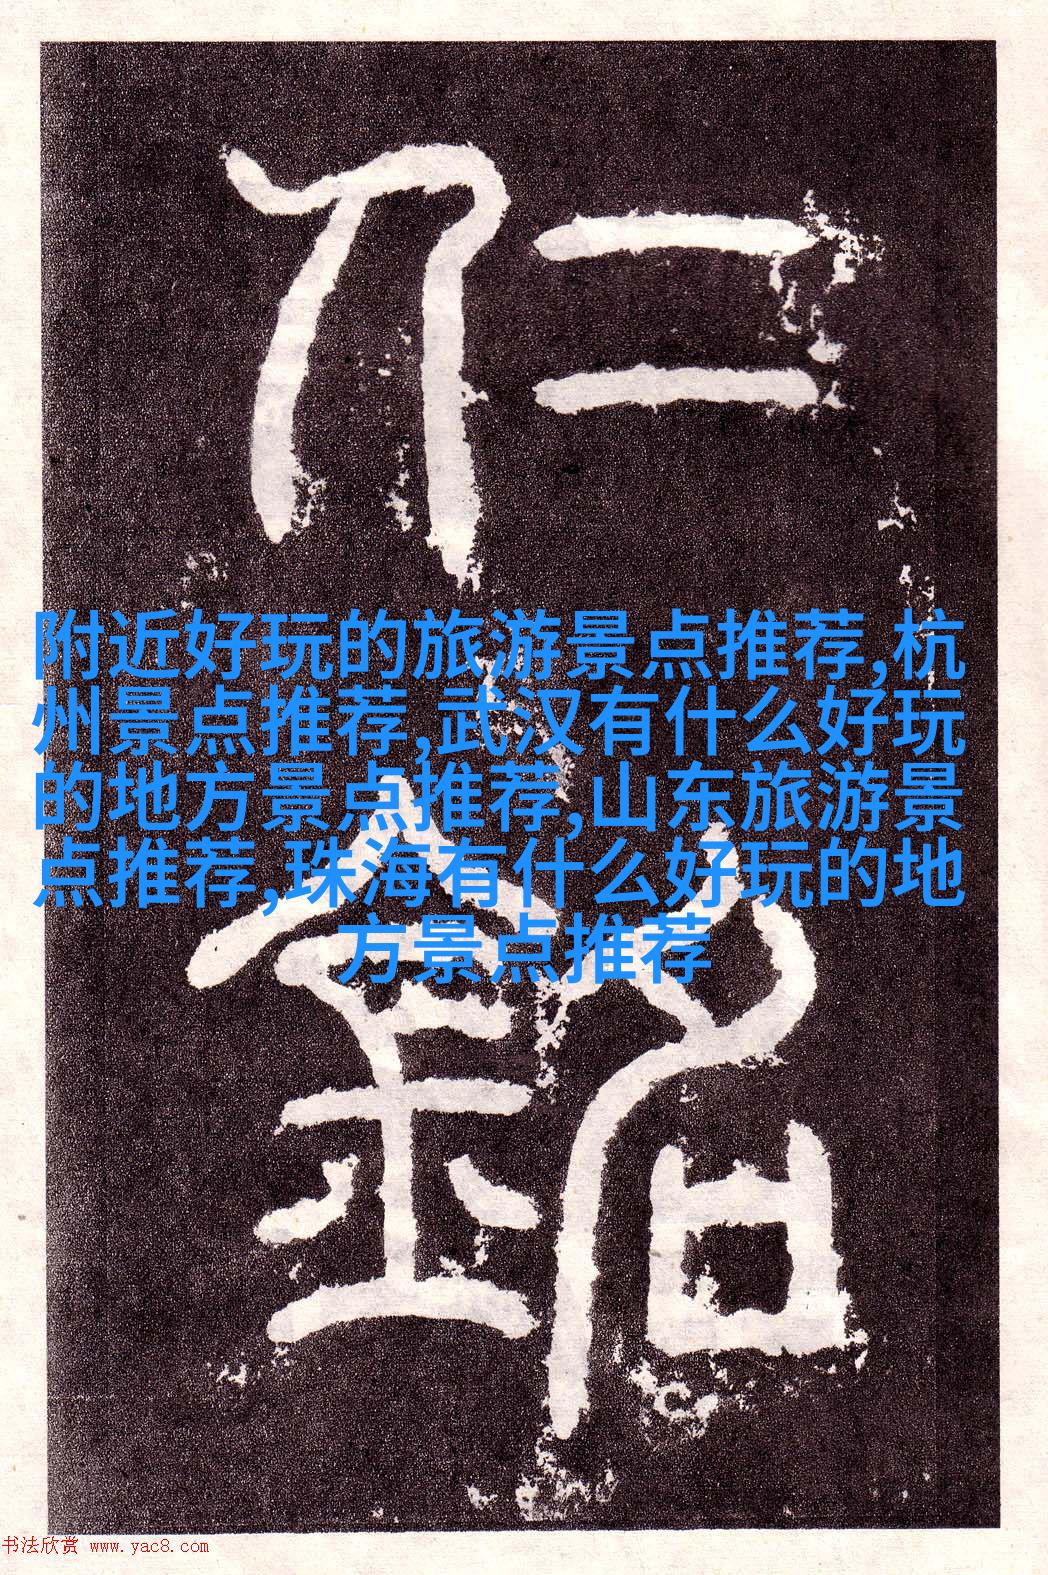 仁
附近好玩的旅游景点推荐,杭
州景点推荐,武汉有什么好玩
的地方景点推荐,山东旅游景
点推荐,珠海有什么好玩的地
方景点推荐
书法欣赏 www.yac8.com